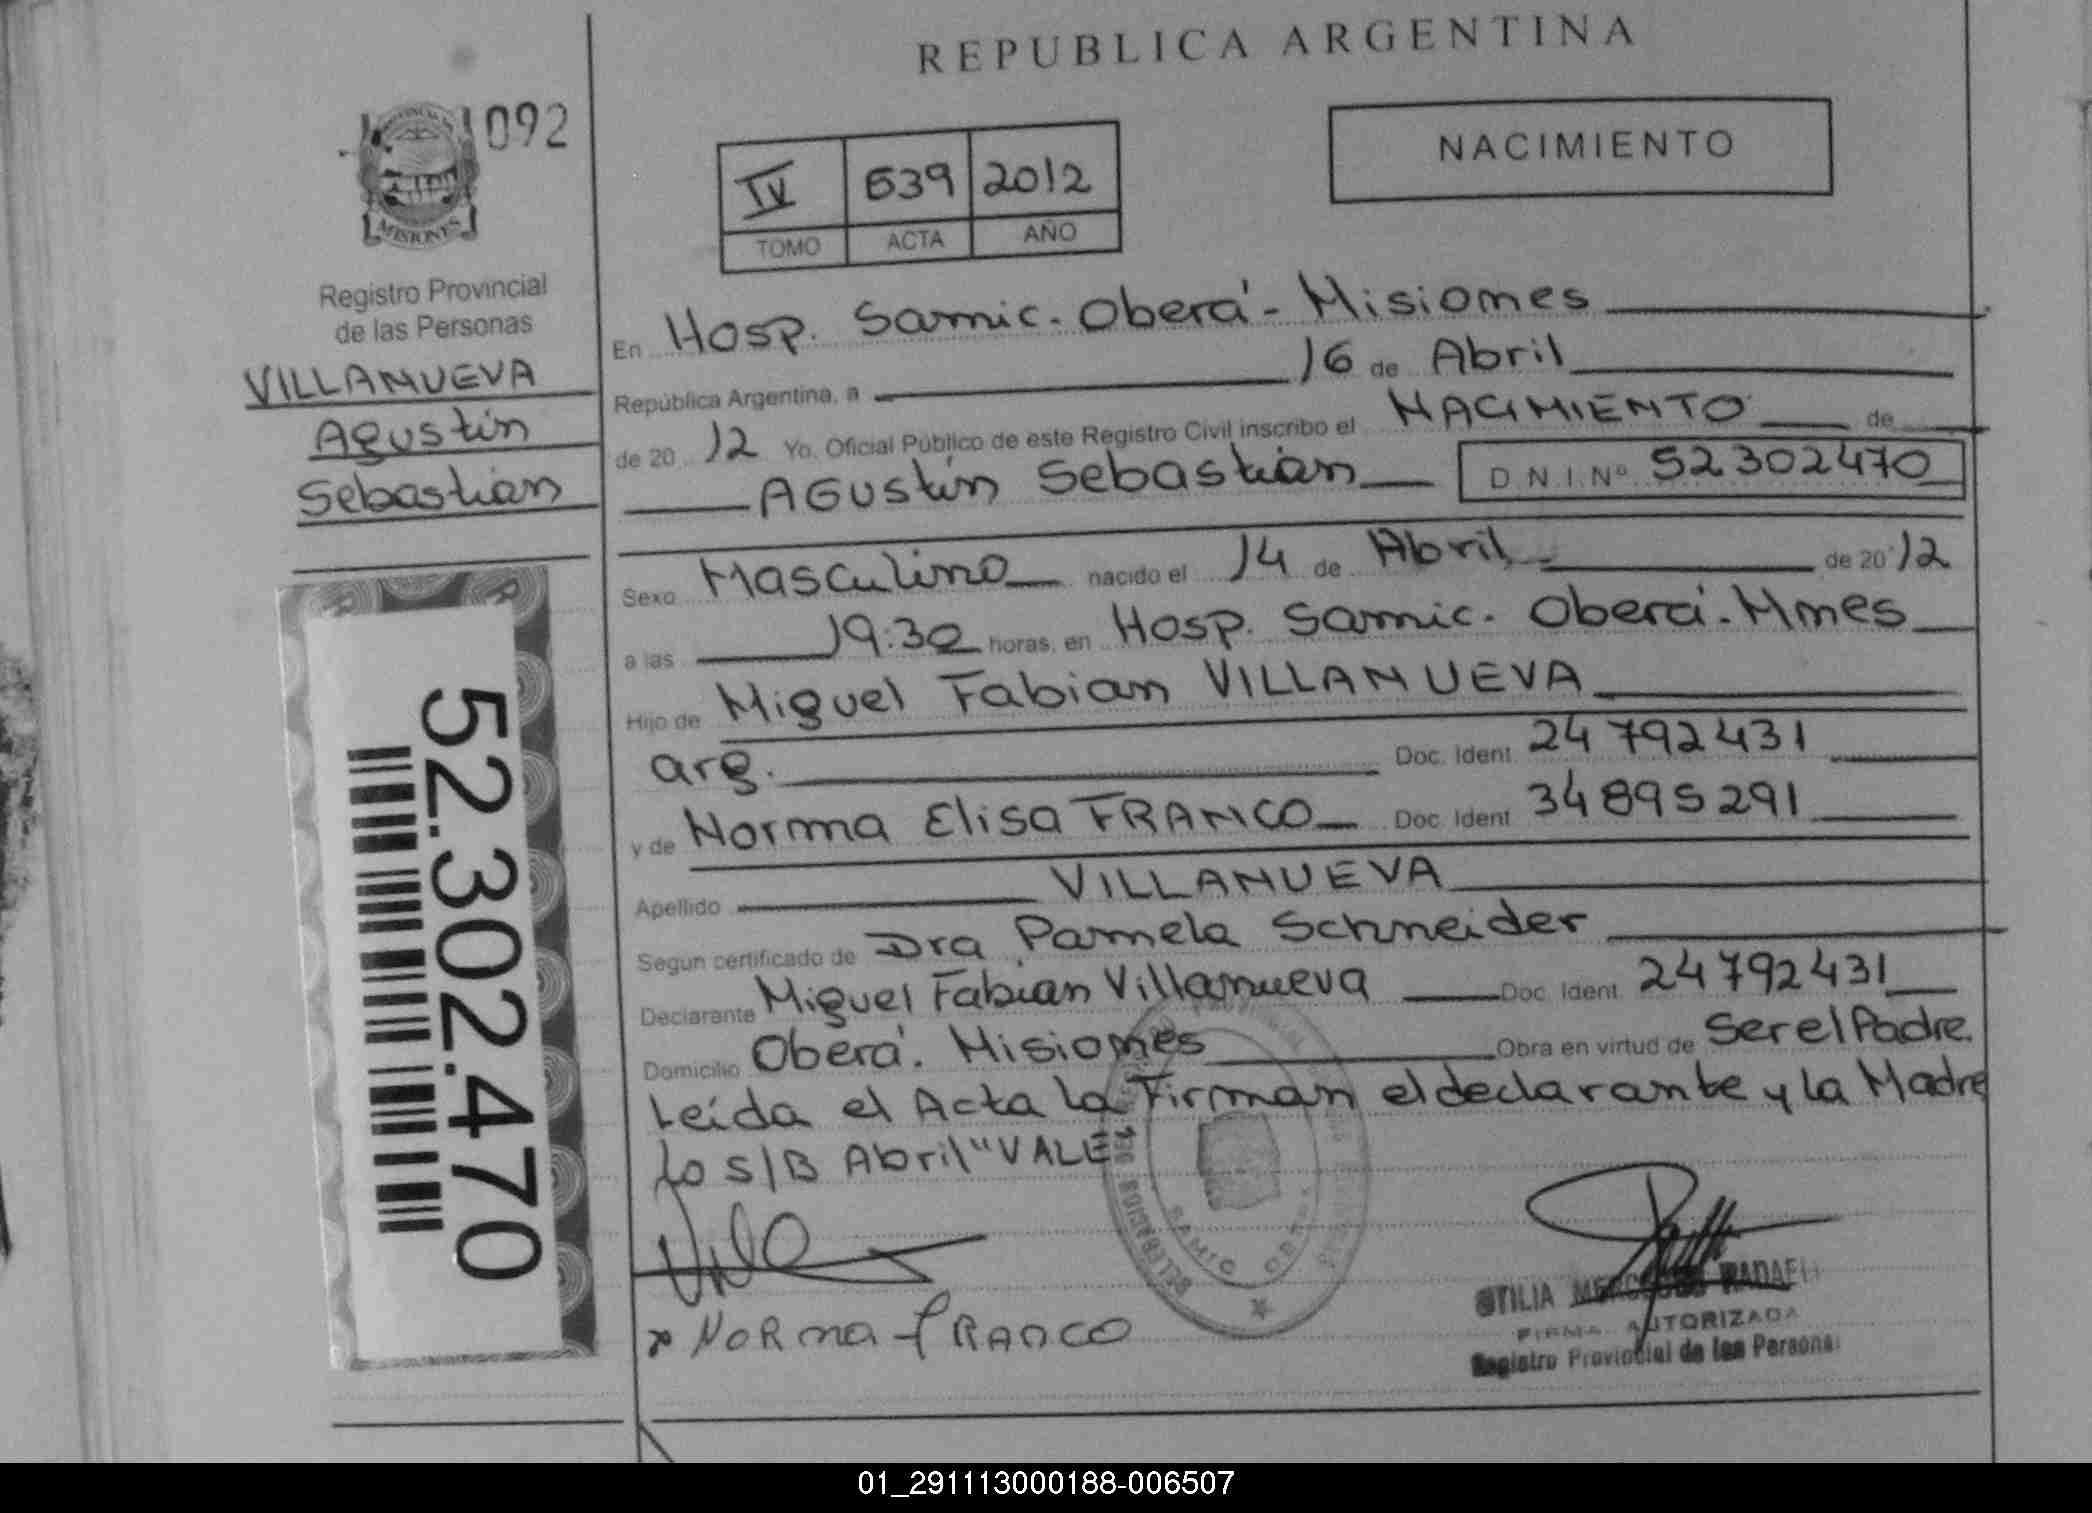 REPUBLICA ARGENTINA
092
MISIONES
Registro Provincial
de las Personas
VILLANUEVA
Agustín
Sebastián
52.302.470
NACIMIENTO
IV 639 2012
TOMO ACTA AÑO
En Hosp. Samic. Oberá - Misiones
República Argentina, a 16 de Abril
de 20 12 Yo. Oficial Público de este Registro Civil inscribo el NACIMIENTO de
AGustín Sebastián D.N.I.Nº 52302470
Sexo Masculino nacido el 14 de Abril de 20 12
a las 19:30 horas, en Hosp. Samic. Oberá. Mnes
Hijo de Miguel Fabian VILLANUEVA
arg. Doc. Ident 24792431
y de Norma Elisa FRANCO Doc. Ident 34895291
Apellido VILLANUEVA
Segun certificado de Dra Pamela Schneider
Declarante Miguel Fabian Villanueva Doc. Ident. 24792431
Domicilio Oberá. Misiones Obra en virtud de Ser el Padre.
Leída el Acta la Firman el declarante y la Madre
Lo S/B Abril "VALE
x NORma fRANCO
OTILIA MERCEDES
FIRMA AUTORIZADA
Registro Provincial de las Personas
01_291113000188-006507